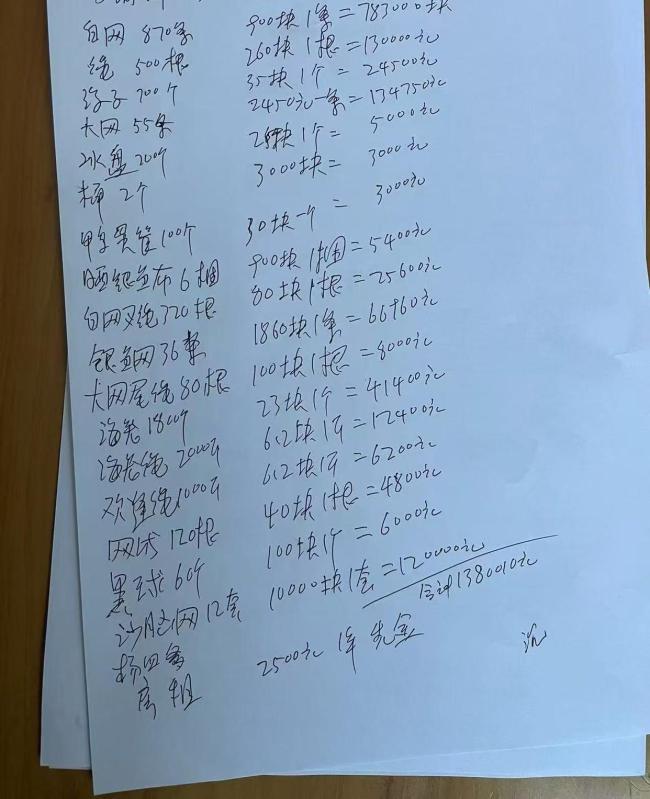 白网 870条 900块1条=783000块
绳 500根 260块1根=130000元
700个 35块1个=24500元
大网 55条 2450元一条=134750元
冰盘 200个 块1个= 5000元
桶 2个 3000块= 3000元
100个 30块一个 = 3000元
晒银鱼布 6捆 900块1捆=5400元
白网叉绳320根 80块1根=25600元
银鱼网36条 1860块1条=66960元
大网尾绳80根 100块1根=8000元
1800个 23块1个=41400元
绳 2000斤 6.2块1斤=12400元
绳1000斤 6.2块1斤=6200元
120根 40块1根=4800元
黑球60个 100块1个=6000元
网12套 10000块1套=120000元
合计1380010元
杨四
房租 2500元 1年 先金